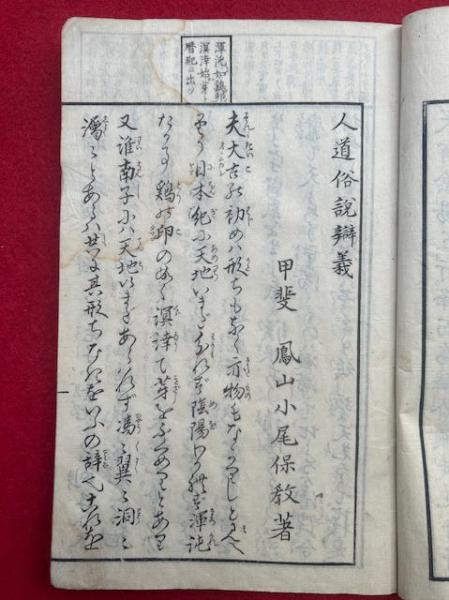 渾沌如鶏卵
溟涬始芽
暦紀ニ出ツ
人道俗説辯義
甲斐 鳳山小尾保教著
夫大古の初めハ形ちもなく亦物もなかりしと
日本紀に天地いまだ陰陽わかれず渾沌
たる事鶏の卵のごとく溟涬て芽をふくめりとあり
又淮南子にハ天地いまだあらわれず馮々翼々洞々
濁々とあるハ共に其形ちなきをいふの辞也これを